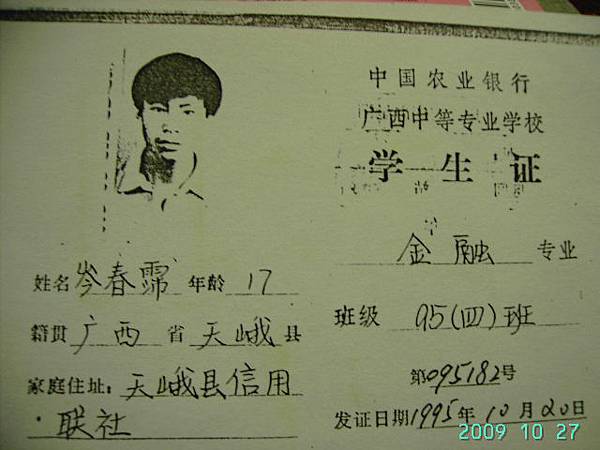 中国农业银行
广西中等专业学校
学生证
金融 专业
班级 95(四)班
第095182号
发证日期1995年10月20日
姓名岑春霈 年龄 17
籍贯广西省天峨县
家庭住址:天峨县信用
联社
2009 10 27